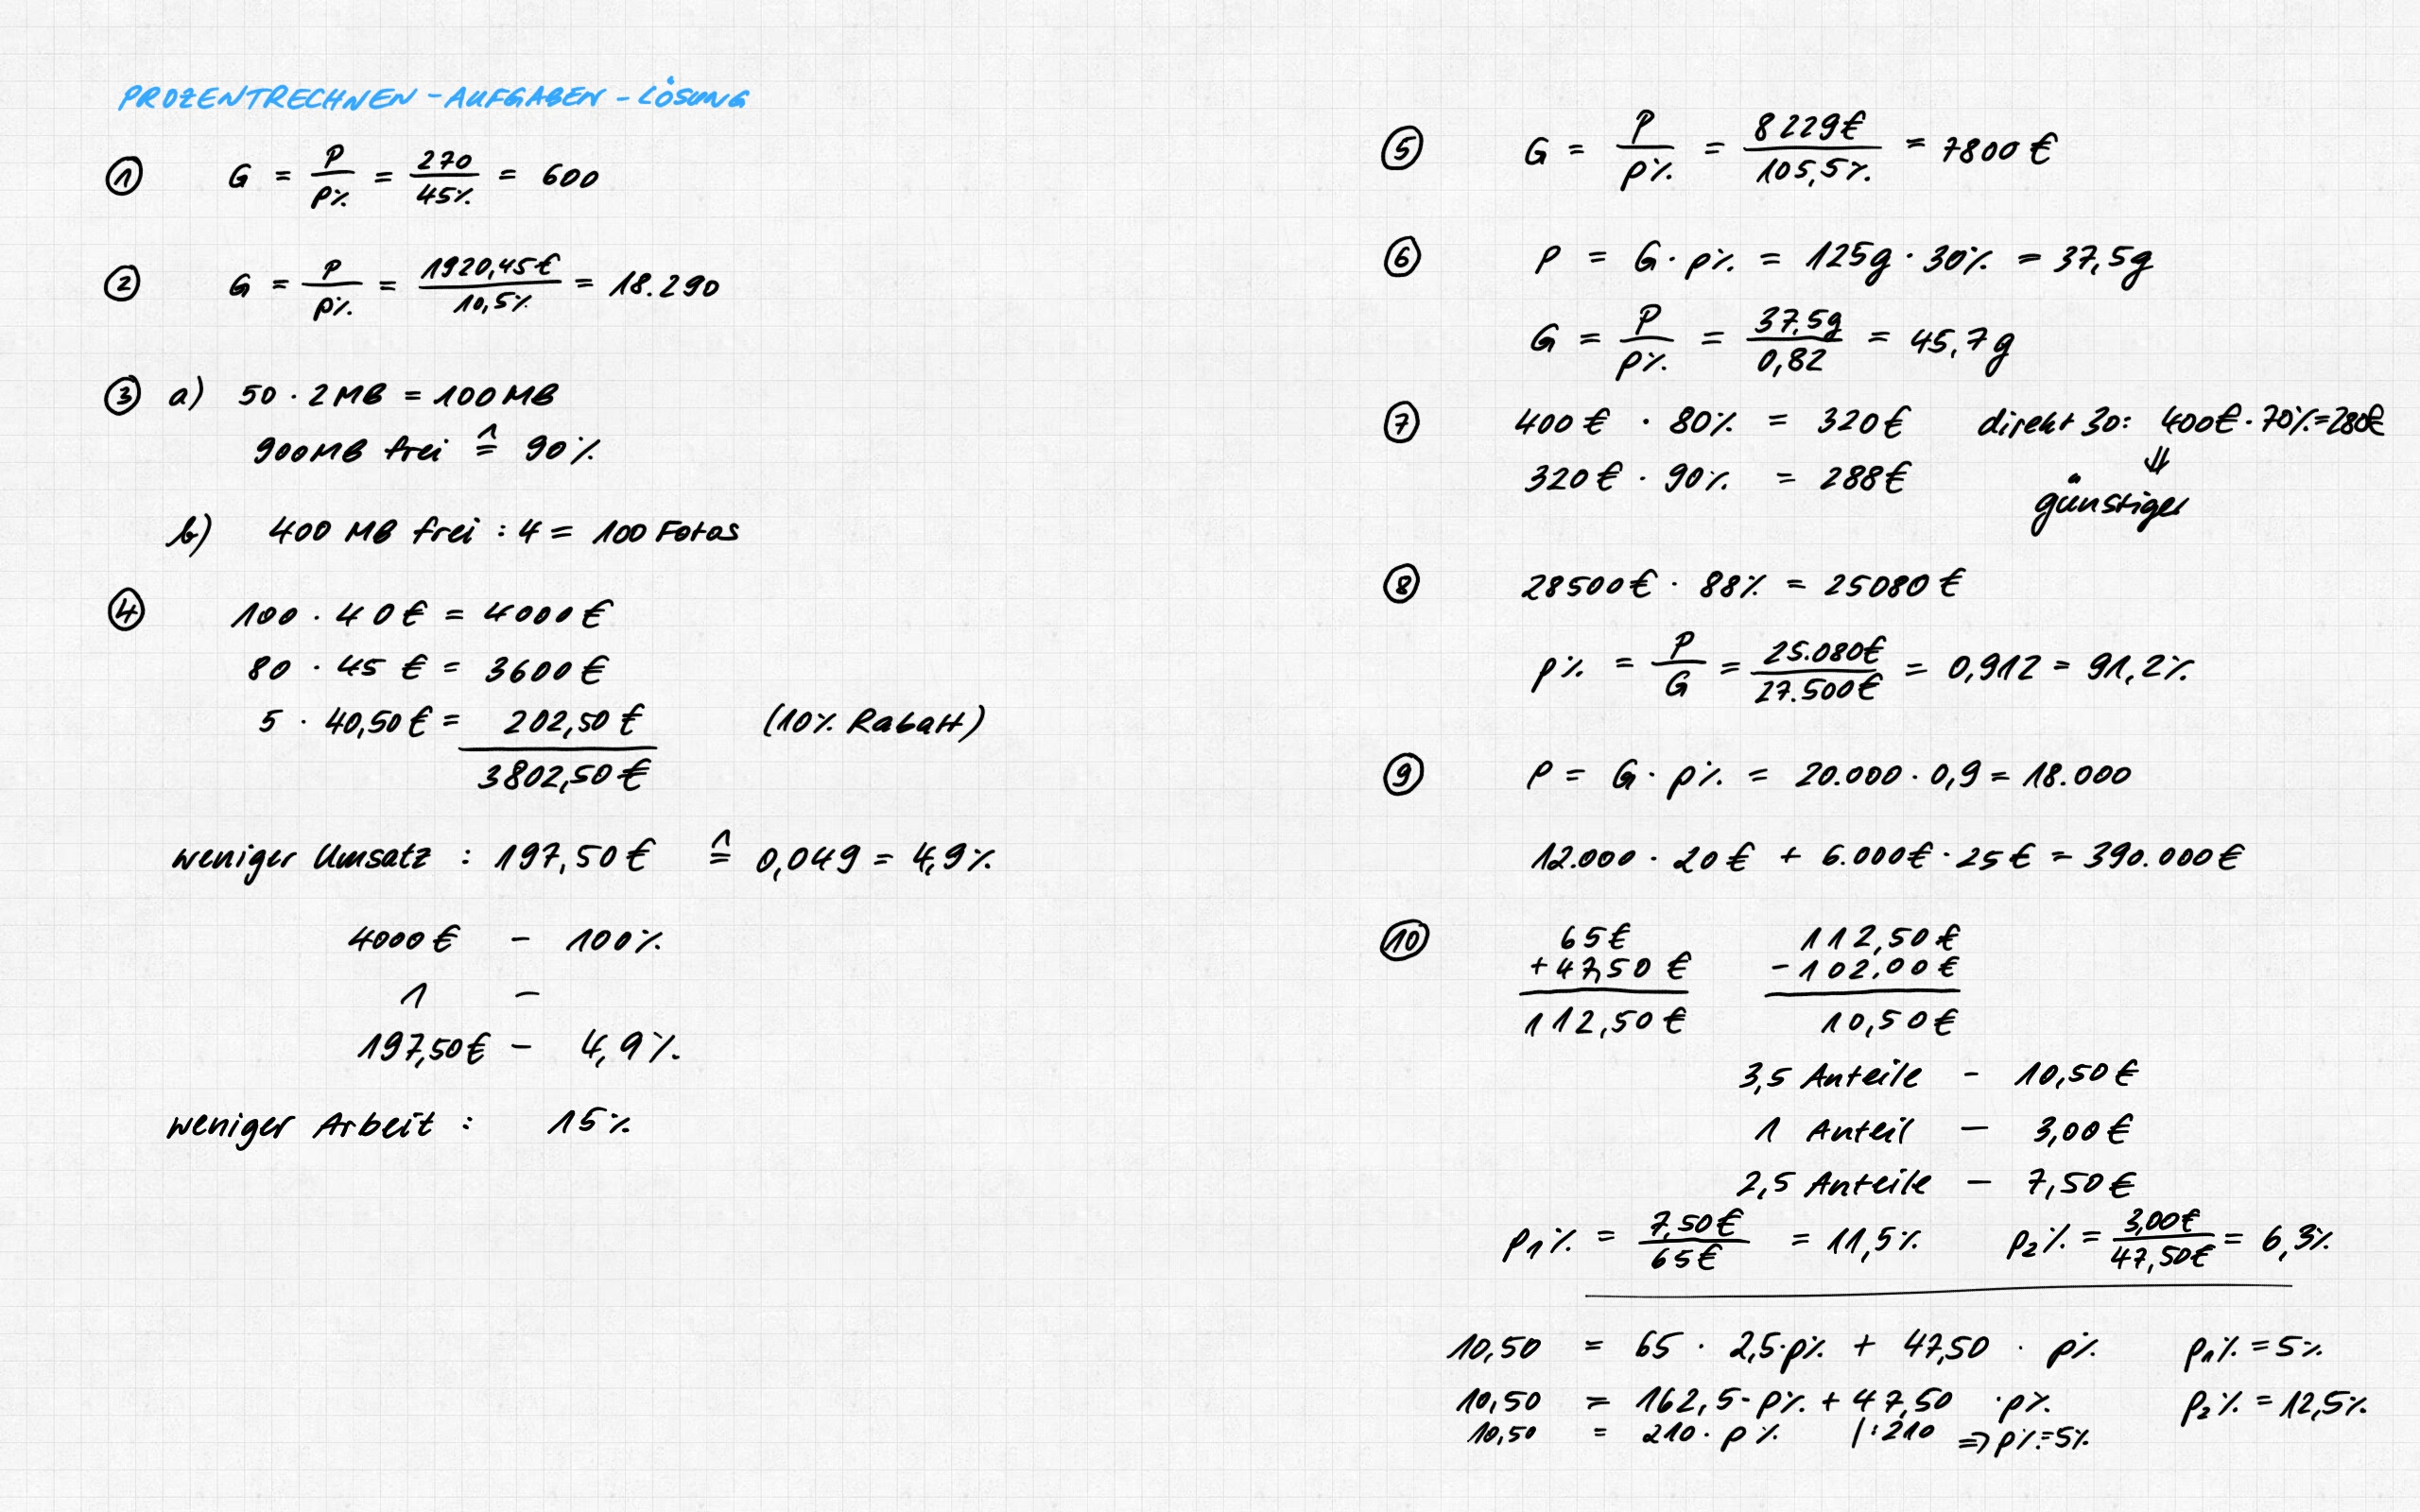 PROZENTRECHNEN - AUFGABEN - LÖSUNG
① G = P / p% = 270 / 45% = 600
② G = P / p% = 1920,45€ / 10,5% = 18.290
③ a) 50 · 2MB = 100MB
900MB frei ≙ 90%
b) 400 MB frei : 4 = 100 Fotos
④ 100 · 40€ = 4000€
80 · 45€ = 3600€
5 · 40,50€ = 202,50€ (10% Rabatt)
3802,50€
weniger Umsatz : 197,50€ ≙ 0,049 = 4,9%
4000€ - 100%
1 -
197,50€ - 4,9%
weniger Arbeit : 15%
⑤ G = P / p% = 8229€ / 105,5% = 7800€
⑥ P = G · p% = 125g · 30% = 37,5g
G = P / p% = 37,5g / 0,82 = 45,7g
⑦ 400€ · 80% = 320€ direkt 30: 400€ · 70% = 280€
⇓
320€ · 90% = 288€ günstiger
⑧ 28500€ · 88% = 25080€
p% = P / G = 25.080€ / 27.500€ = 0,912 = 91,2%
⑨ P = G · p% = 20.000 · 0,9 = 18.000
12.000 · 20€ + 6.000€ · 25€ = 390.000€
⑩ 65€ 112,50€
+ 47,50€ - 102,00€
112,50€ 10,50€
3,5 Anteile - 10,50€
1 Anteil - 3,00€
2,5 Anteile - 7,50€
p₁% = 7,50€ / 65€ = 11,5% p₂% = 3,00€ / 47,50€ = 6,3%
10,50 = 65 · 2,5·p% + 47,50 · p% p₁% = 5%
10,50 = 162,5·p% + 47,50 ·p% p₂% = 12,5%
10,50 = 210 · p% |:210 ⇒ p%=5%